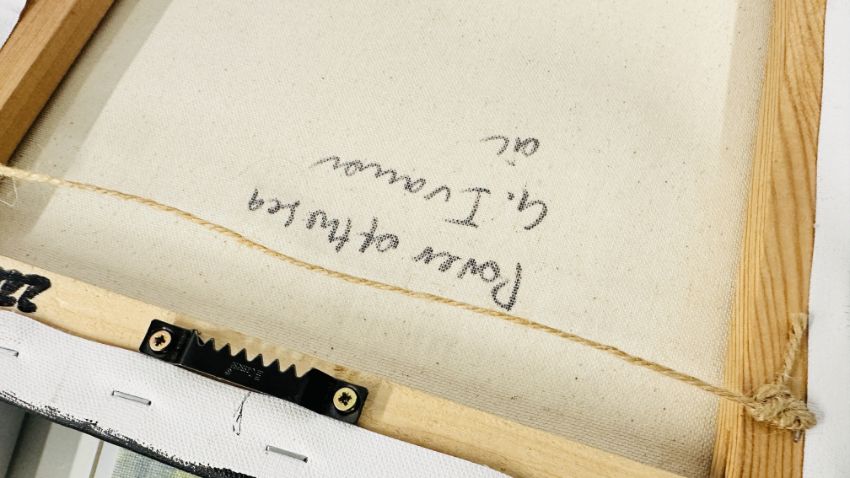 Power of the sea
G. Ivanov
oil